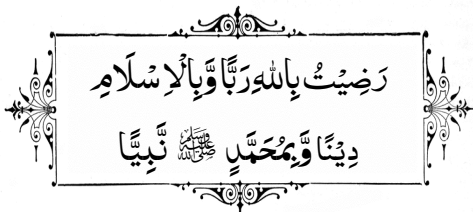 رَضِيْتُ بِاللهِ رَبًّا وَّبِالْاِسْلَامِ
دِيْنًا وَّبِمُحَمَّدٍ ﷺ نَّبِيًّا